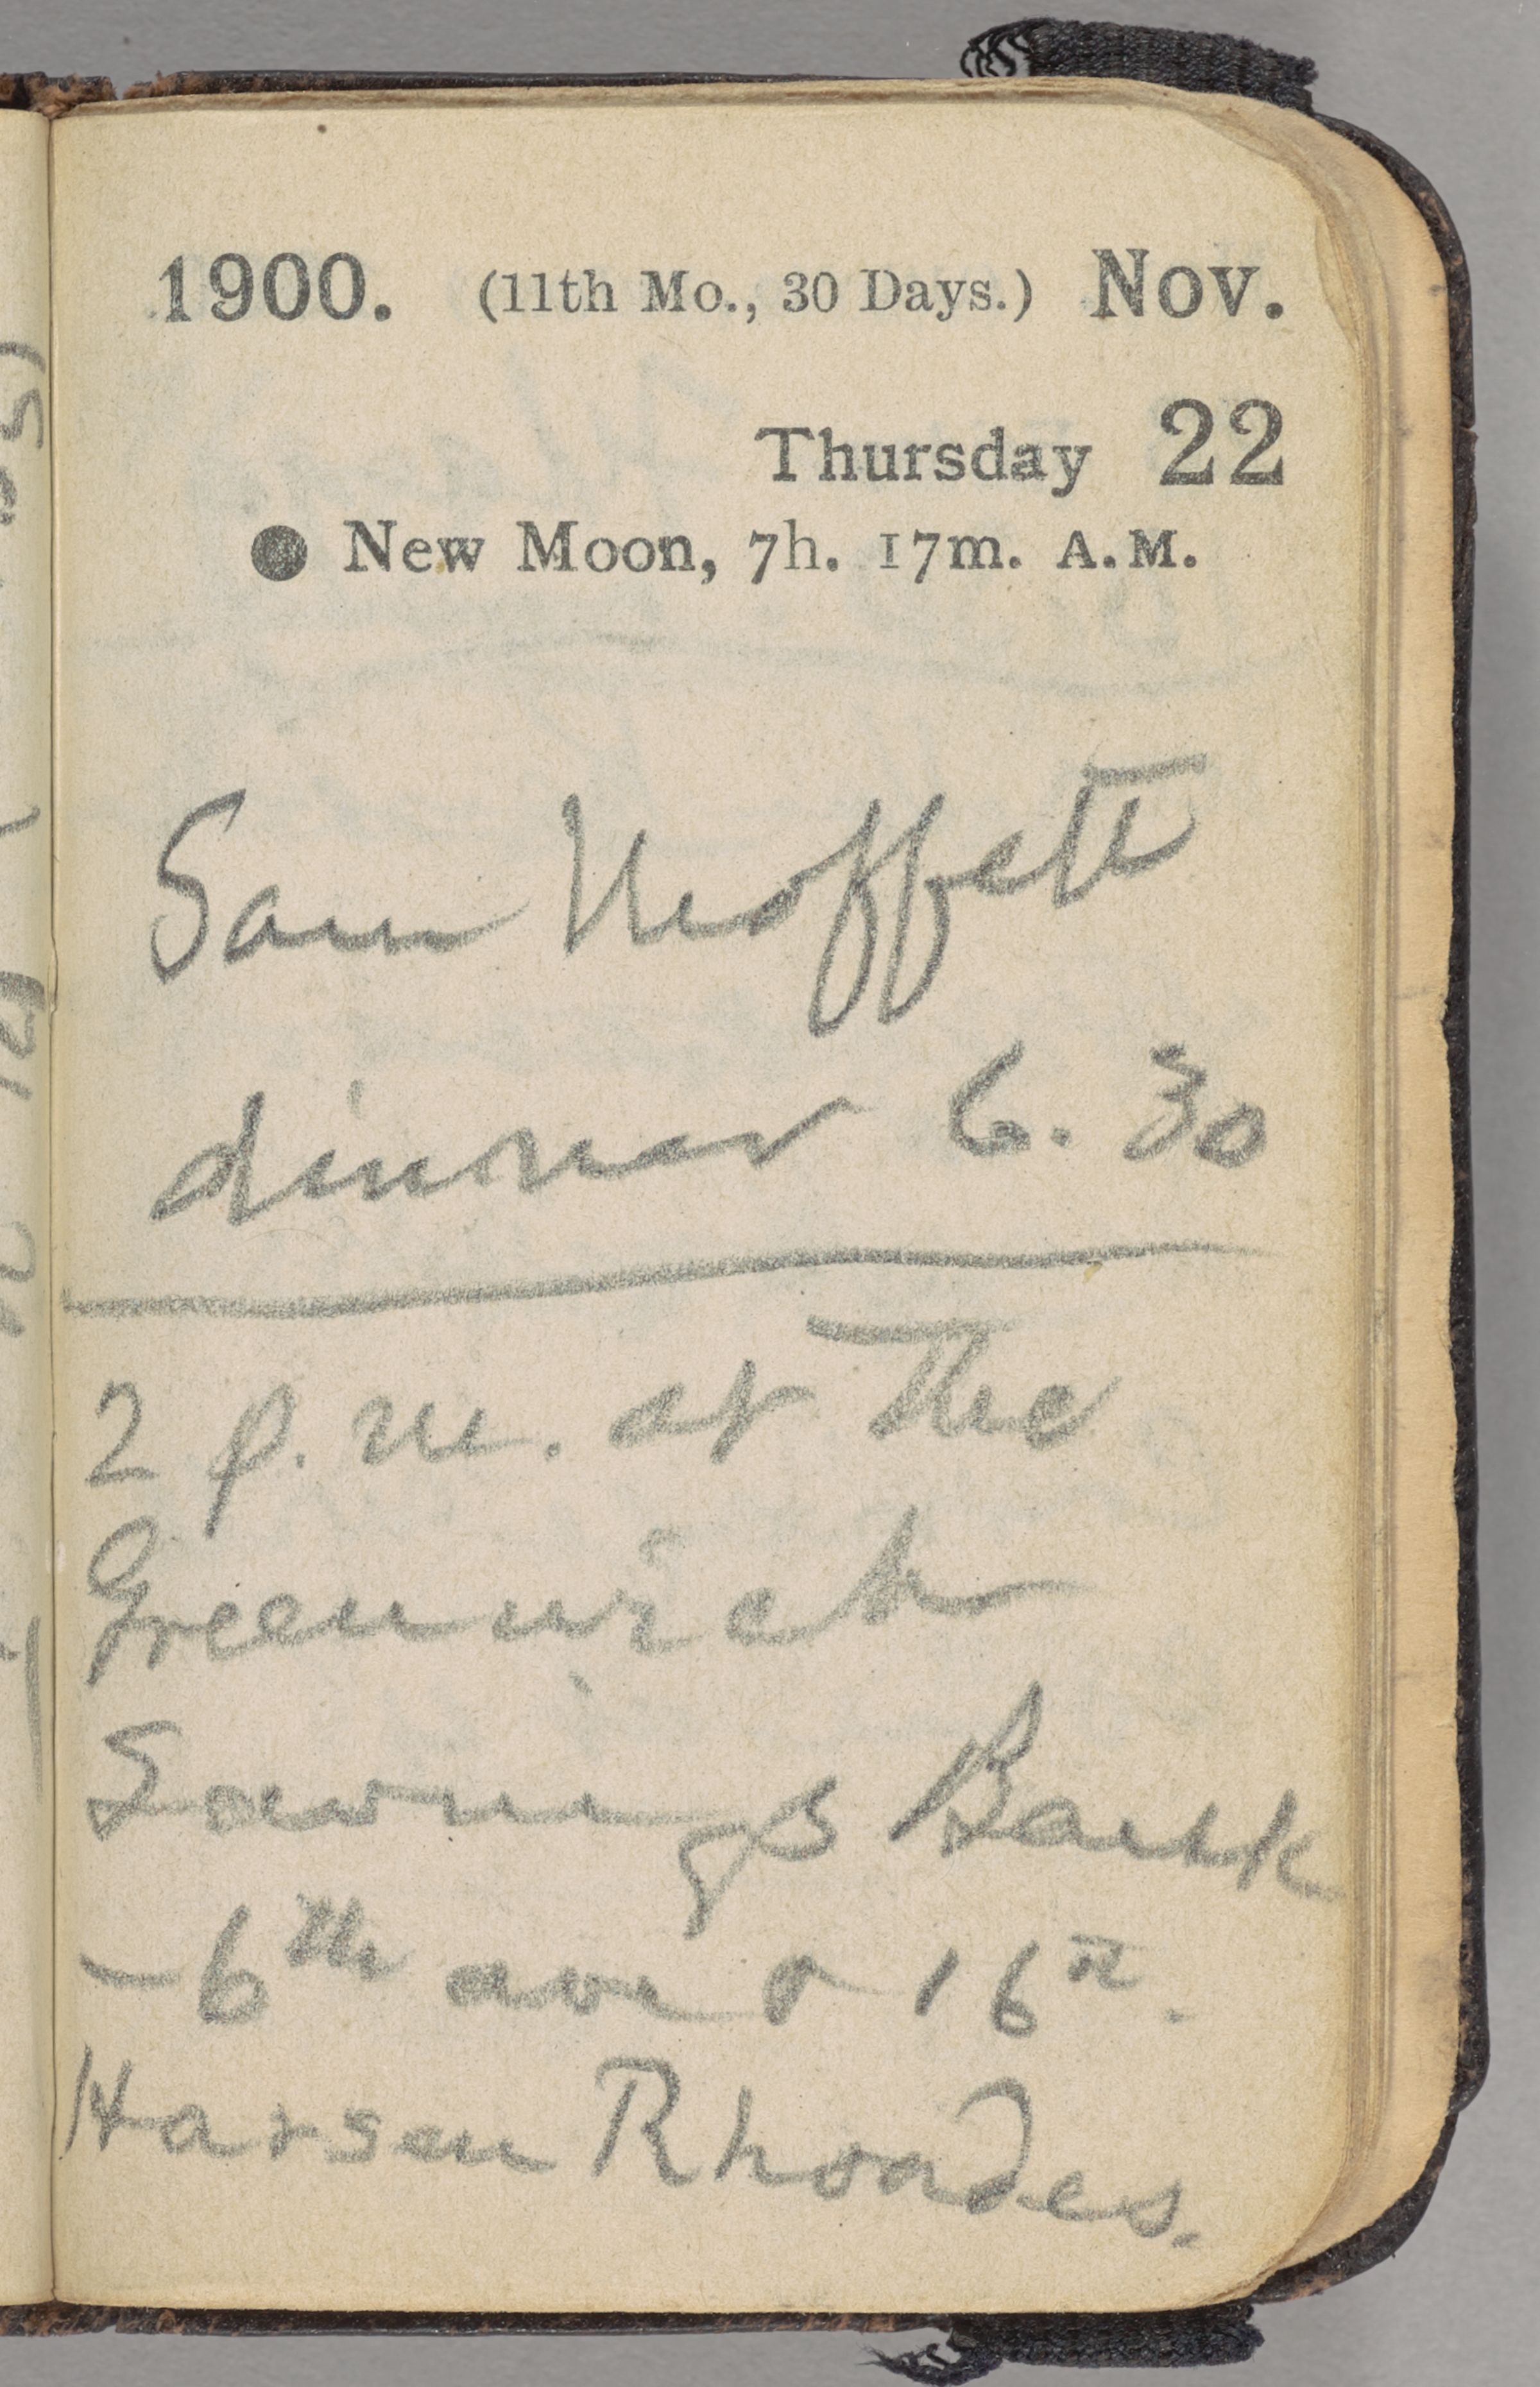 1900. (11th Mo., 30 Days.) Nov.
Thursday 22
● New Moon, 7h. 17m. A.M.
Sam Moffett
dinner 6.30
2 p.m. at the
Greenwich
Savings Bank
– 6th ave & 16th.
Harsen Rhoades.